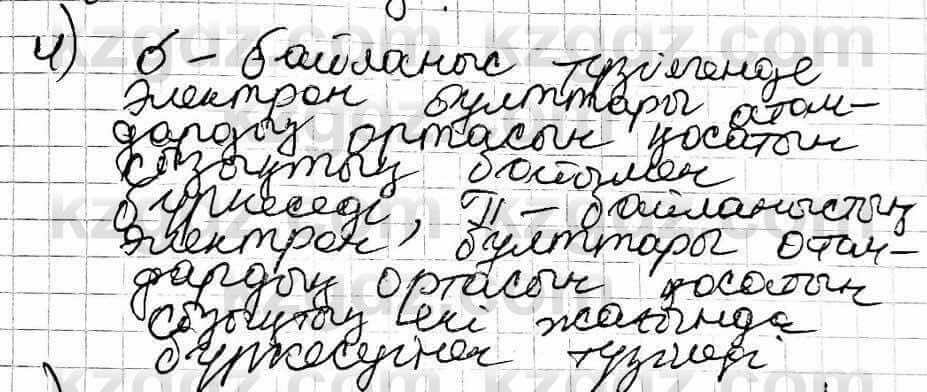 4) б – байланыс түзілгенде
электрон бұлттары атом-
дардың ортасын қосатын
сызықтың бойымен
бүркеседі, П – байланыстың
электрон, бұлттары атом-
дардың ортасын қосатын
сызықтың екі жағында
бүркесуінен түзіледі